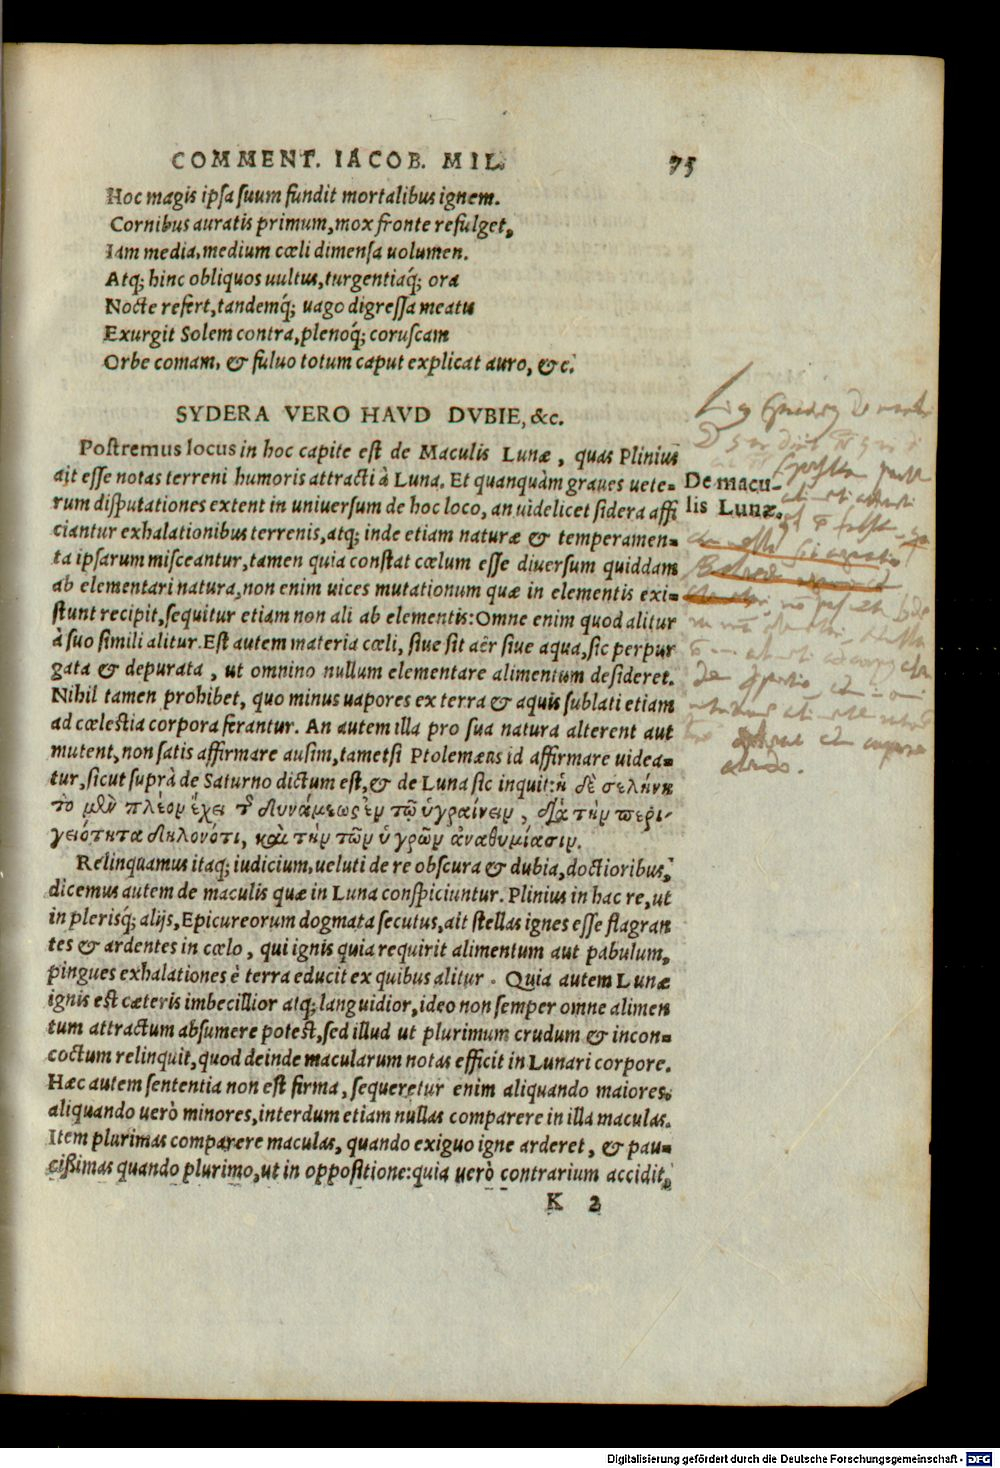 COMMENT. IACOB. MIL. 75
Hoc magis ipsa suum fundit mortalibus ignem.
Cornibus auratis primum, mox fronte refulget,
Iam media, medium cœli dimensa uolumen.
Atq; hinc obliquos uultus, turgentiaq́; ora
Nocte refert, tandemq́; uago digressa meatu
Exurgit Solem contra, plenoq́; coruscam
Orbe comam, & fuluo totum caput explicat auro, &c.
SYDERA VERO HAVD DVBIE, &c.
Postremus locus in hoc capite est de Maculis Lunæ, quas Plinius
ait esse notas terreni humoris attracti à Luna. Et quanquàm graues uete=
rum disputationes extent in uniuersum de hoc loco, an uidelicet sidera affi
ciantur exhalationibus terrenis, atq; inde etiam naturæ & temperamen=
ta ipsarum misceantur, tamen quia constat cœlum esse diuersum quiddam
ab elementari natura, non enim uices mutationum quæ in elementis exi=
stunt recipit, sequitur etiam non ali ab elementis: Omne enim quod alitur
à suo simili alitur. Est autem materia cœli, siue sit aër siue aqua, sic perpur
gata & depurata, ut omnino nullum elementare alimentum desideret.
Nihil tamen prohibet, quo minus uapores ex terra & aquis sublati etiam
ad cœlestia corpora ferantur. An autem illa pro sua natura alterent aut
mutent, non satis affirmare ausim, tametsi Ptolemæus id affirmare uidea=
tur, sicut suprà de Saturno dictum est, & de Luna sic inquit: ἡ δὲ σελήνη
τὸ μὲν πλέον ἔχει τ͂ δυνάμεως ἐν τῷ ὑγραίνειν, διὰ τὴν περι-
γειότητα δηλονότι, καὶ τὴν τῶν ὑγρῶν ἀναθυμίασιν.
De macu-
lis Lunæ.
Relinquamus itaq; iudicium, ueluti de re obscura & dubia, doctioribus,
dicemus autem de maculis quæ in Luna conspiciuntur. Plinius in hac re, ut
in plerisq́; alijs, Epicureorum dogmata secutus, ait stellas ignes esse flagran
tes & ardentes in cœlo, qui ignis quia requirit alimentum aut pabulum,
pingues exhalationes è terra educit ex quibus alitur. Quia autem Lunæ
ignis est cæteris imbecillior atq; languidior, ideo non semper omne alimen
tum attractum absumere potest, sed illud ut plurimum crudum & incon=
coctum relinquit, quod deinde macularum notas efficit in Lunari corpore.
Hæc autem sententia non est firma, sequeretur enim aliquando maiores,
aliquando uerò minores, interdum etiam nullas comparere in illa maculas.
Item plurimas comparere maculas, quando exiguo igne arderet, & pau=
cißimas quando plurimo, ut in oppositione: quia uerò contrarium accidit,
K 2
Digitalisierung gefördert durch die Deutsche Forschungsgemeinschaft - DFG